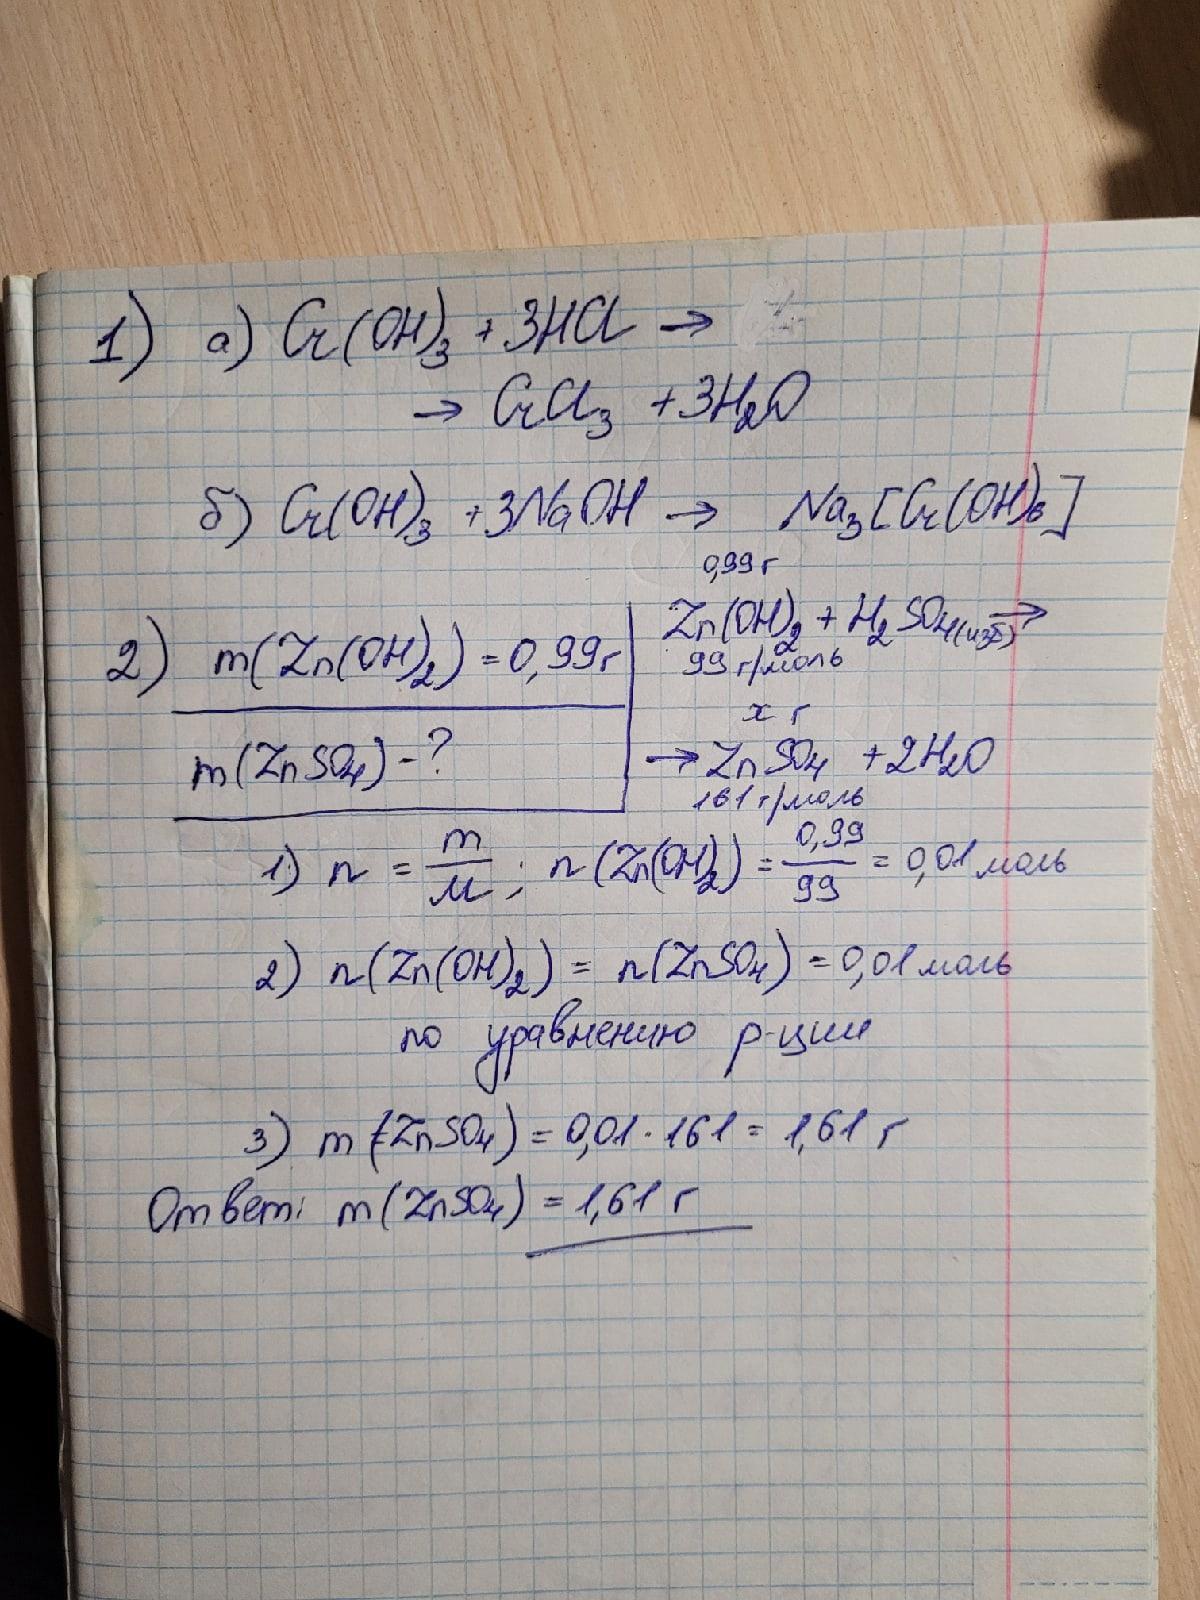 1) а) Cr(OH)₃ + 3HCl →
→ CrCl₃ + 3H₂O
б) Cr(OH)₃ + 3NaOH → Na₃[Cr(OH)₆]
2) m(Zn(OH)₂) = 0,99 г
m(ZnSO₄) - ?
0,99 г
Zn(OH)₂ + H₂SO₄(изб) →
99 г/моль
x г
→ ZnSO₄ + 2H₂O
161 г/моль
1) n = m/M ; n(Zn(OH)₂) = 0,99/99 = 0,01 моль
2) n(Zn(OH)₂) = n(ZnSO₄) = 0,01 моль
по уравнению р-ции
3) m(ZnSO₄) = 0,01 · 161 = 1,61 г
Ответ: m(ZnSO₄) = 1,61 г